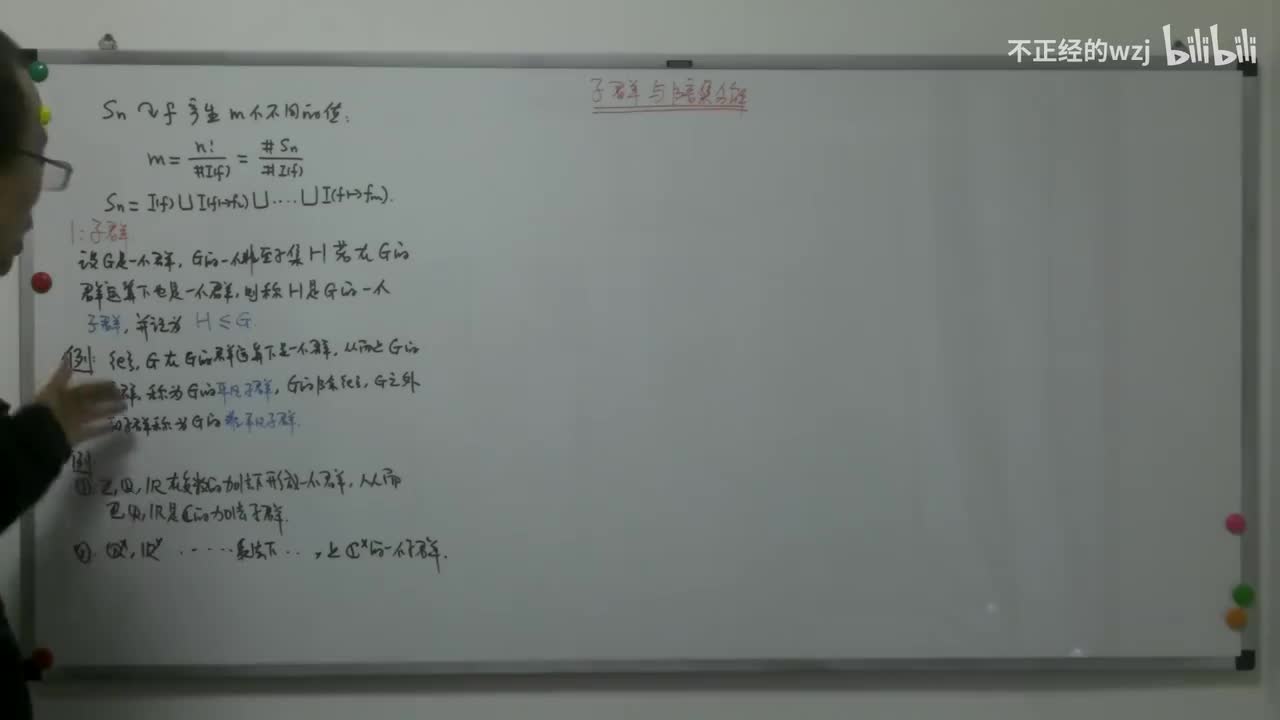 不正经的wzj bilibili
子群与陪集分解
Sn ↷ f 产生 m个不同的值:
m = n!/#I(f) = #Sn/#I(f)
Sn = I(f) ⊔ I(f↦f₂) ⊔ .... ⊔ I(f↦fm).
1: 子群
设G是一个群, G的一个非空子集 H 若在 G的
群运算下也是一个群, 则称 H是G的一个
子群, 并记为 H ≤ G.
例: {e}, G 在 G的群运算下是一个群, 从而是 G的
群, 称为G的平凡子群, G的除{e}, G之外
的子群称为G的非平凡子群.
例
①. Z, Q, R 在复数的加法下形成一个群, 从而
Z, Q, R是C的加法子群.
②. Q^x, R^x ...... 乘法下 ..., 是 C^x的一个子群.